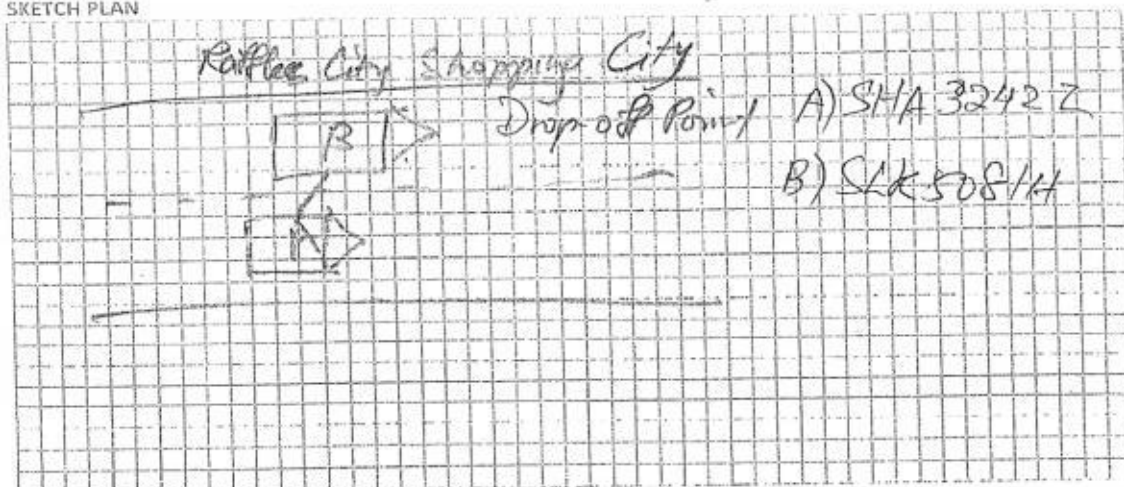 SKETCH PLAN
Raffles City Shopping City
Drop-off Point
A) SHA 3242 Z
B) SLK5081H
B
A